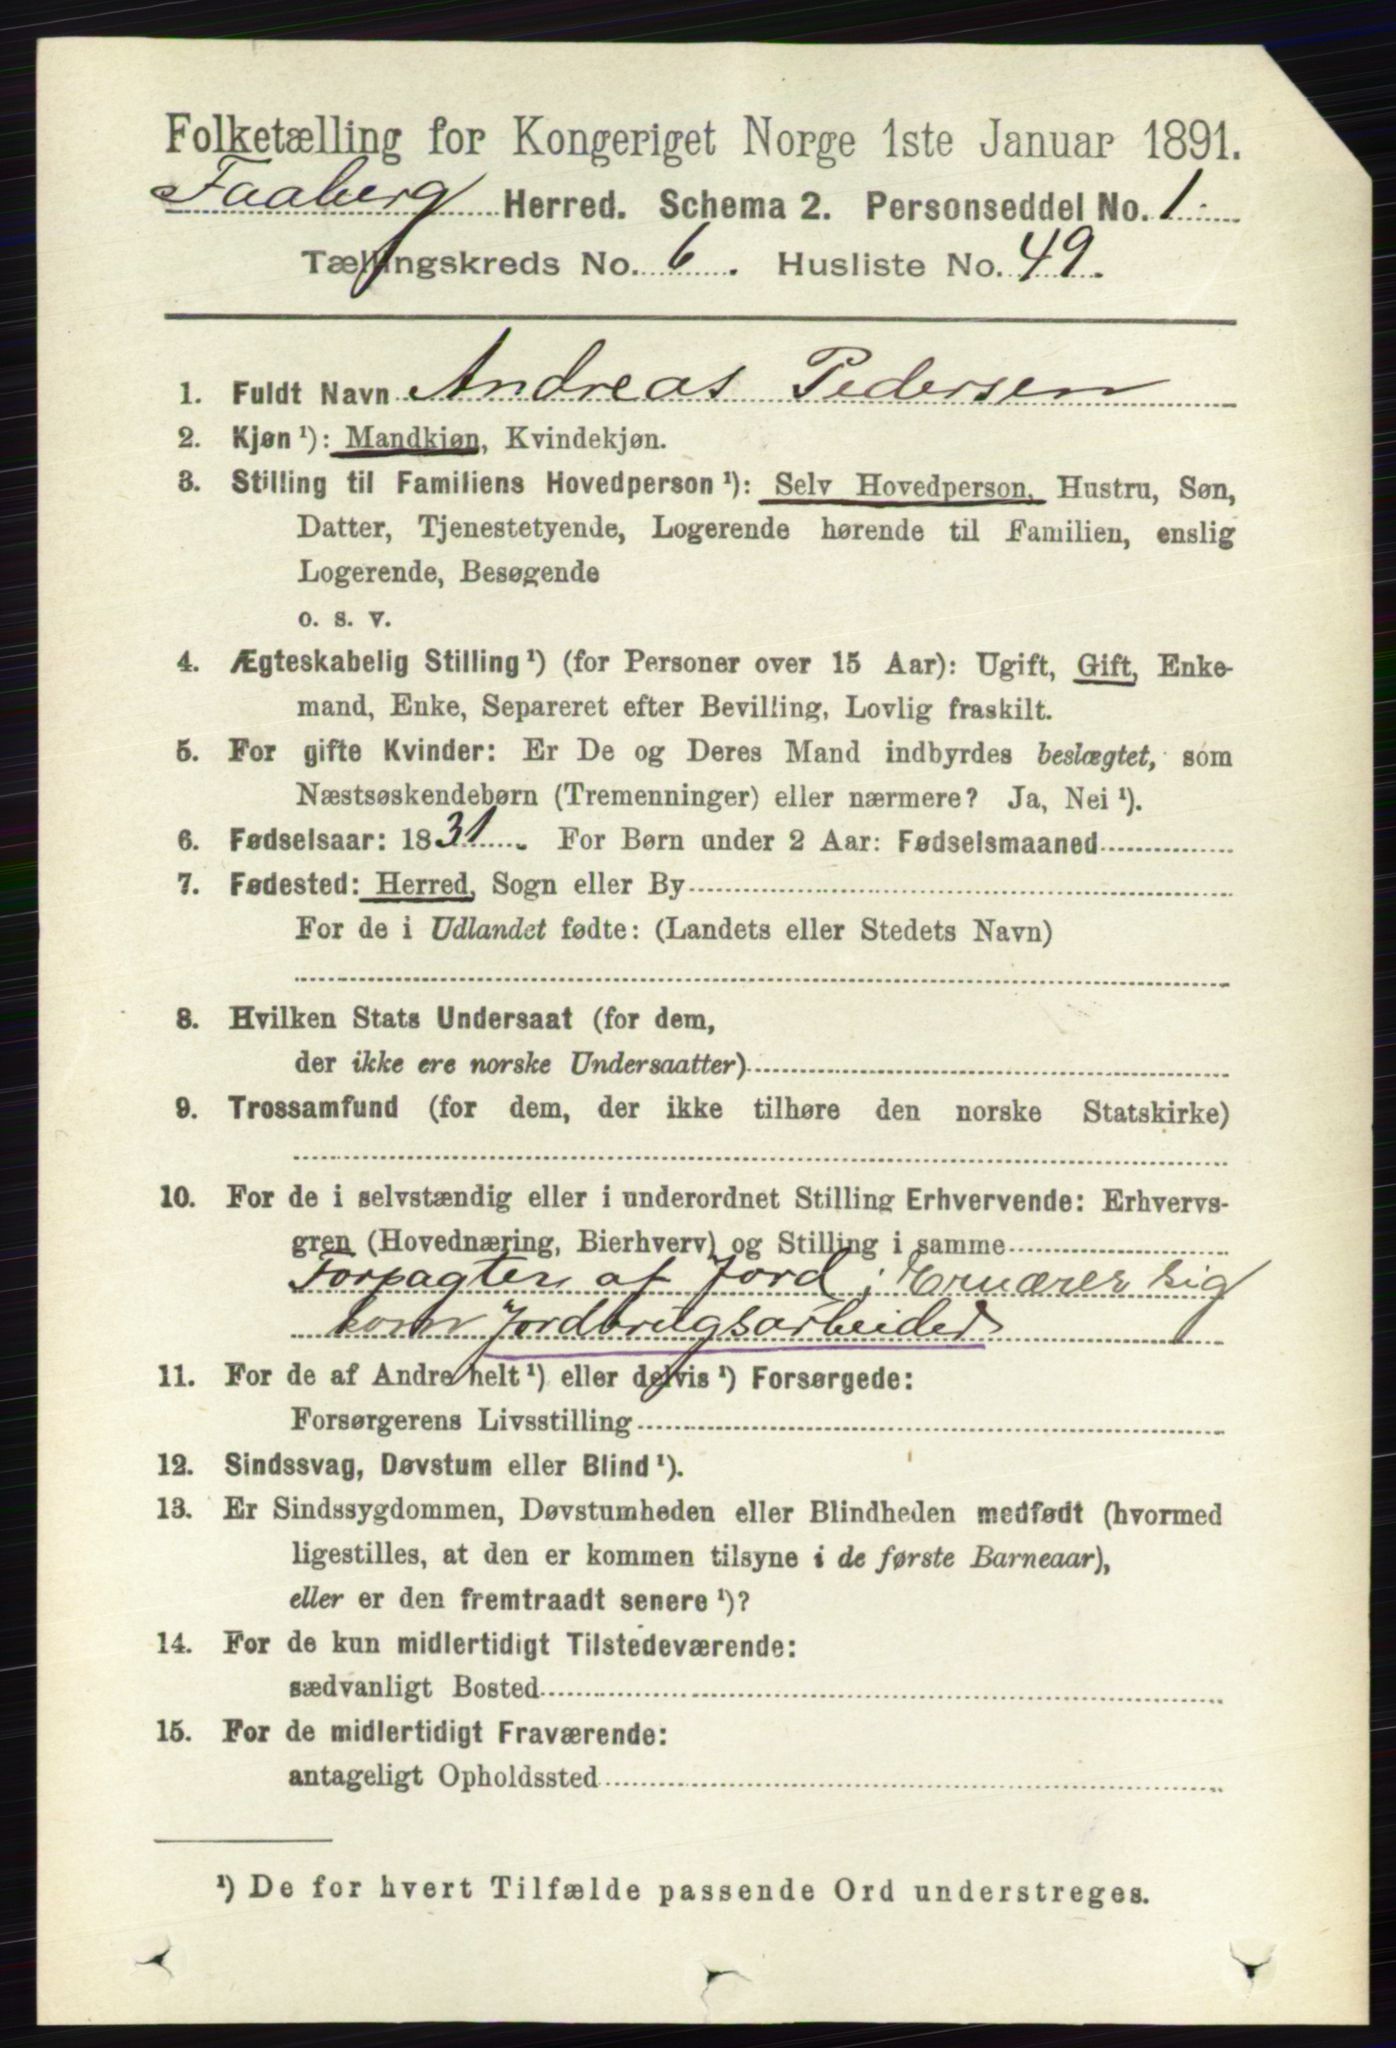 Folketælling for Kongeriget Norge 1ste Januar 1891.
Faaberg Herred. Schema 2. Personseddel No. 1.
Tællingskreds No. 6. Husliste No. 49.
1. Fuldt Navn Andreas Pedersen
2. Kjøn ¹): Mandkjøn, Kvindekjøn.
3. Stilling til Familiens Hovedperson ¹): Selv Hovedperson, Hustru, Søn,
Datter, Tjenestetyende, Logerende hørende til Familien, enslig
Logerende, Besøgende
o. s. v.
4. Ægteskabelig Stilling ¹) (for Personer over 15 Aar): Ugift, Gift, Enke-
mand, Enke, Separeret efter Bevilling, Lovlig fraskilt.
5. For gifte Kvinder: Er De og Deres Mand indbyrdes beslægtet, som
Næstsøskendebørn (Tremenninger) eller nærmere? Ja, Nei ¹).
6. Fødselsaar: 1831. For Børn under 2 Aar: Fødselsmaaned
7. Fødested: Herred, Sogn eller By
For de i Udlandet fødte: (Landets eller Stedets Navn)
8. Hvilken Stats Undersaat (for dem,
der ikke ere norske Undersaatter)
9. Trossamfund (for dem, der ikke tilhøre den norske Statskirke)
10. For de i selvstændig eller i underordnet Stilling Erhvervende: Erhvervs-
gren (Hovednæring, Bierhverv) og Stilling i samme
Forpagter af Jord; Ernærer sig
som Jordbrugsarbeider
11. For de af Andre helt ¹) eller delvis ¹) Forsørgede:
Forsørgerens Livsstilling
12. Sindssvag, Døvstum eller Blind ¹).
13. Er Sindssygdommen, Døvstumheden eller Blindheden medfødt (hvormed
ligestilles, at den er kommen tilsyne i de første Barneaar),
eller er den fremtraadt senere ¹)?
14. For de kun midlertidigt Tilstedeværende:
sædvanligt Bosted
15. For de midlertidigt Fraværende:
antageligt Opholdssted
¹) De for hvert Tilfælde passende Ord understreges.